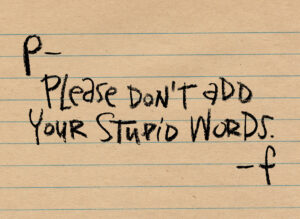 P-
PLease DON'T aDD
YOUR STUPiD WORDS.
-f